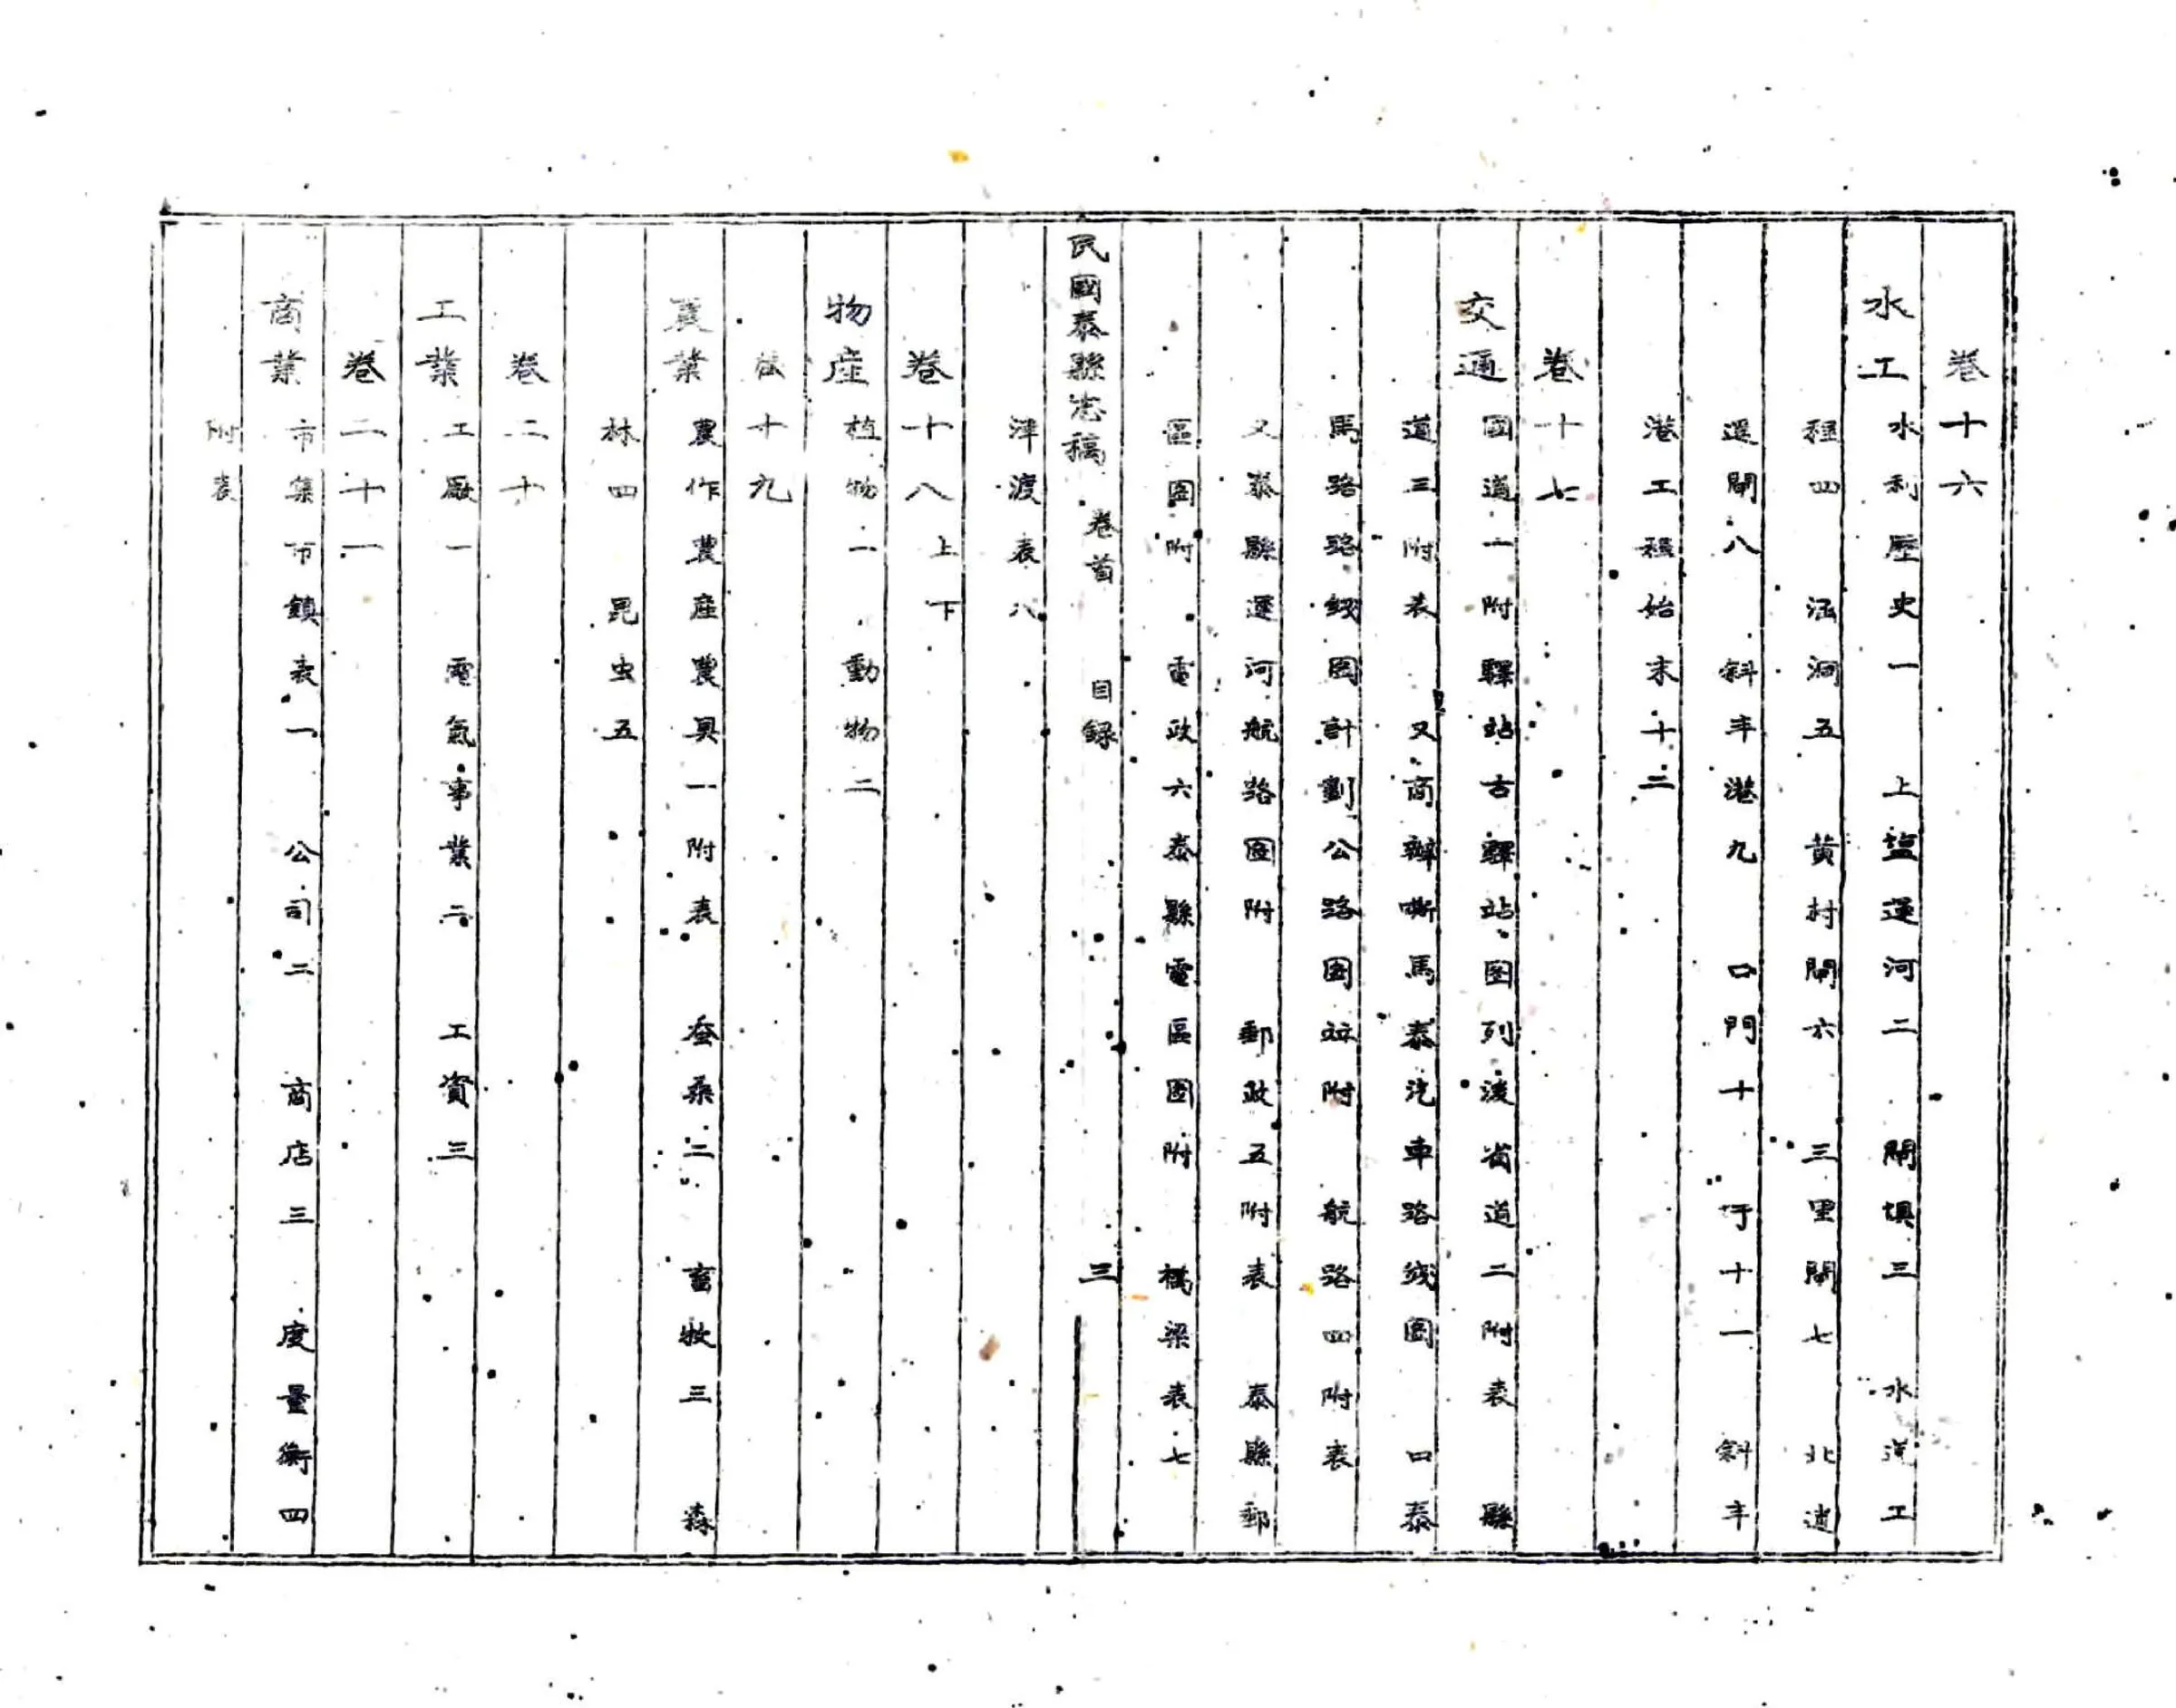 卷十六
水工 水利歷史一 上鹽運河二 閘壩三 水道工
程四 涵洞五 黄村閘六 三里閘七 北遞
運閘八 斜丰港九 口門十 圩十一 斜丰
港工程始末十二
卷十七
交通 國道一附驛站古驛站图列後省道二附表 縣
道三附表 又商辦嘶馬泰汽車路线圖 口泰
馬路路綫圖計劃公路图竝附 航路四附表
又泰縣運河航路圖附 郵政五附表 泰縣郵
區图附 電政六泰縣電區图附 橋梁表七
民國泰縣志稿 卷首 目録 三
津渡表八
卷十八上下
物産 植物一 動物二
卷十九
農業 農作農産農具一附表 蚕桑二 畜牧三 森
林四 昆虫五
卷二十
工業 工厰一 電氣事業二 工資三
卷二十一
商業 市集市鎮表一 公司二 商店三 度量衡四
附表